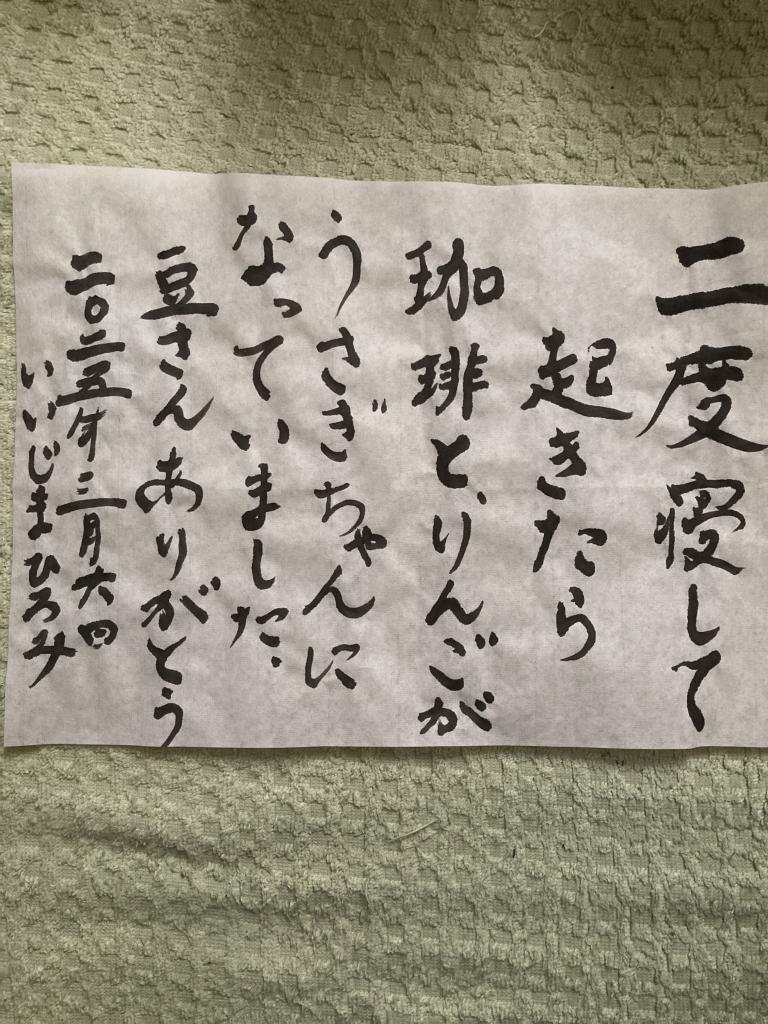 二度寝して
起きたら
珈琲と、りんごが
うさぎちゃんに
なっていました.
豆さんありがとう
二〇二五年三月六日
いいじまひろみ